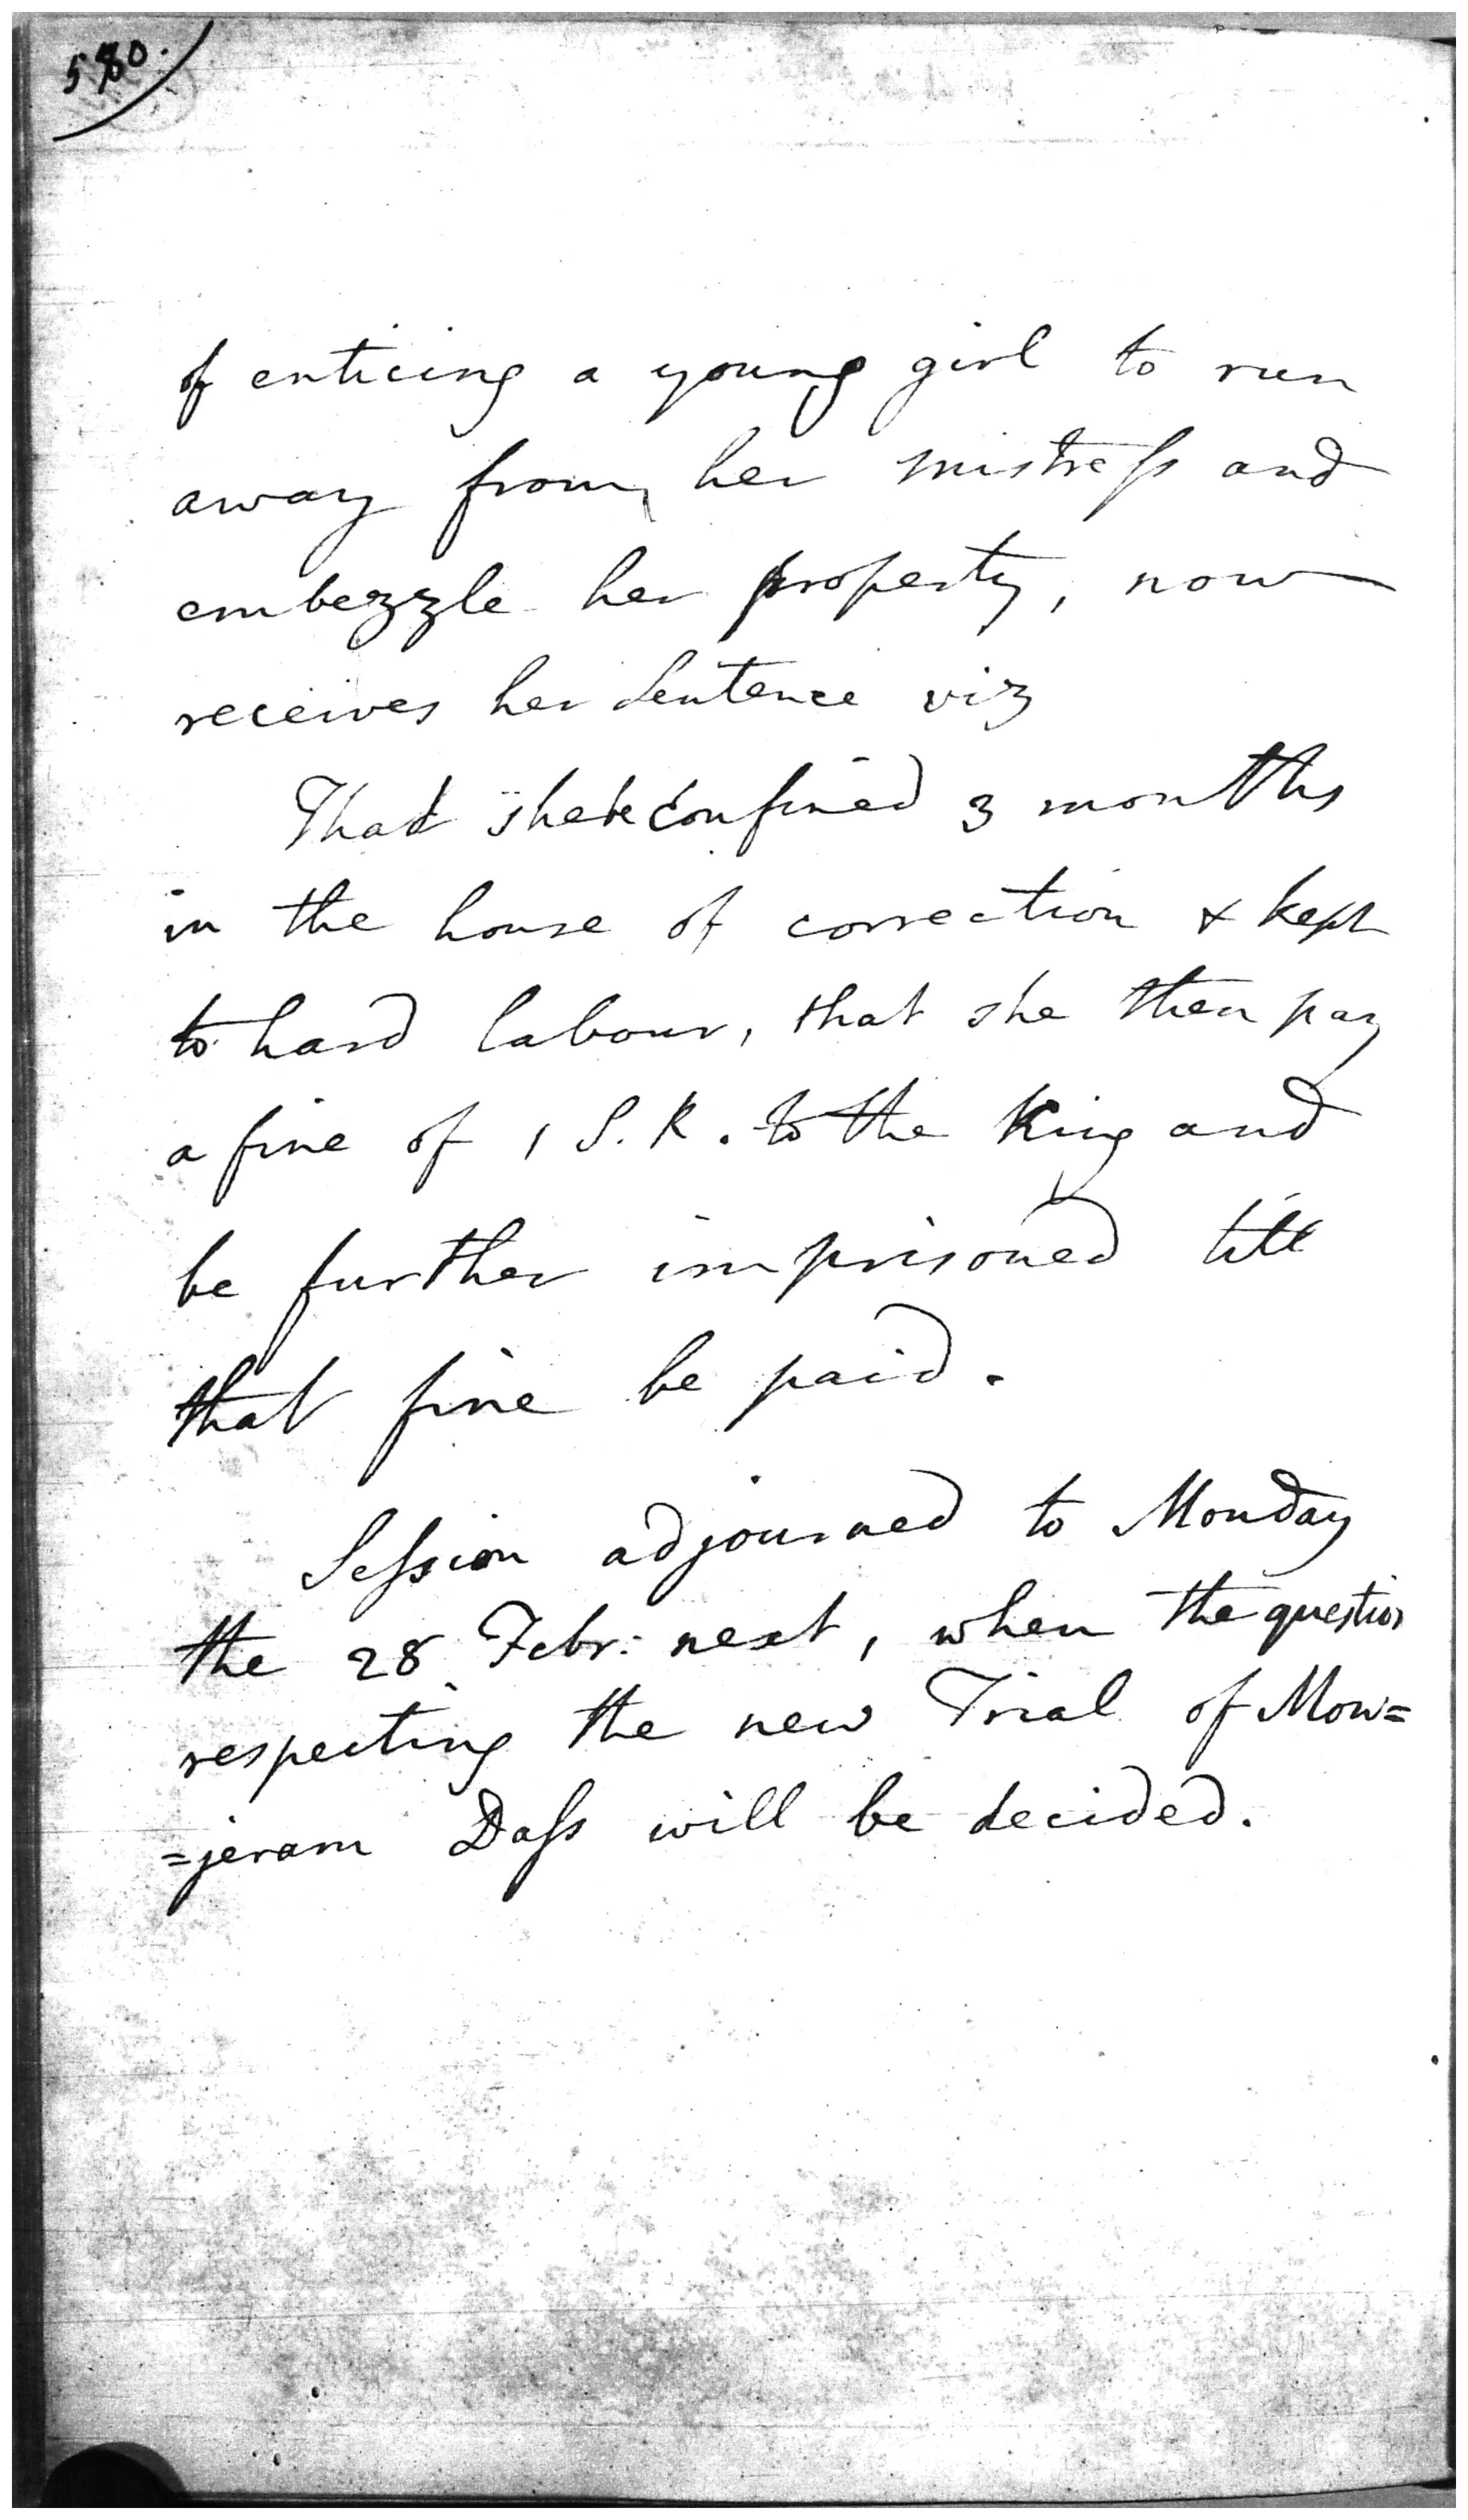 580.
of enticing a young girl to run
away from her mistress and
embezzle her property, now
receives her Sentence viz
That she be confined 3 months
in the house of correction & kept
to hard labour, that she then pay
a fine of 1 S. R. to the King and
be further imprisoned till
that fine be paid.
Session adjourned to Monday
the 28 Febr: next, when the question
respecting the new Trial of Mow=
=jeram Dass will be decided.